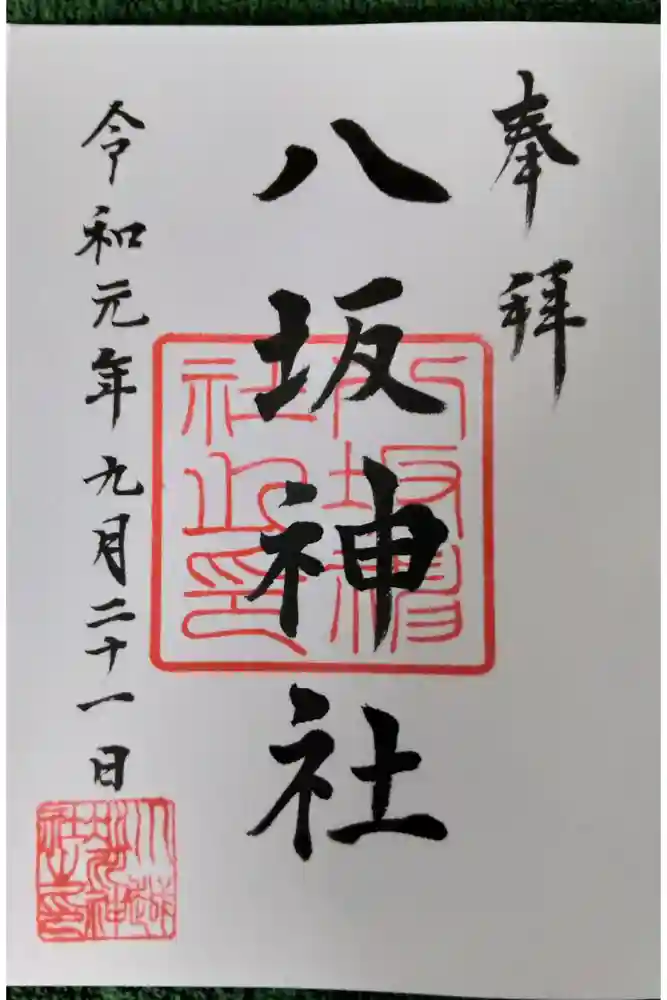 奉拝
八坂神社
令和元年九月二十一日
八坂神社之印